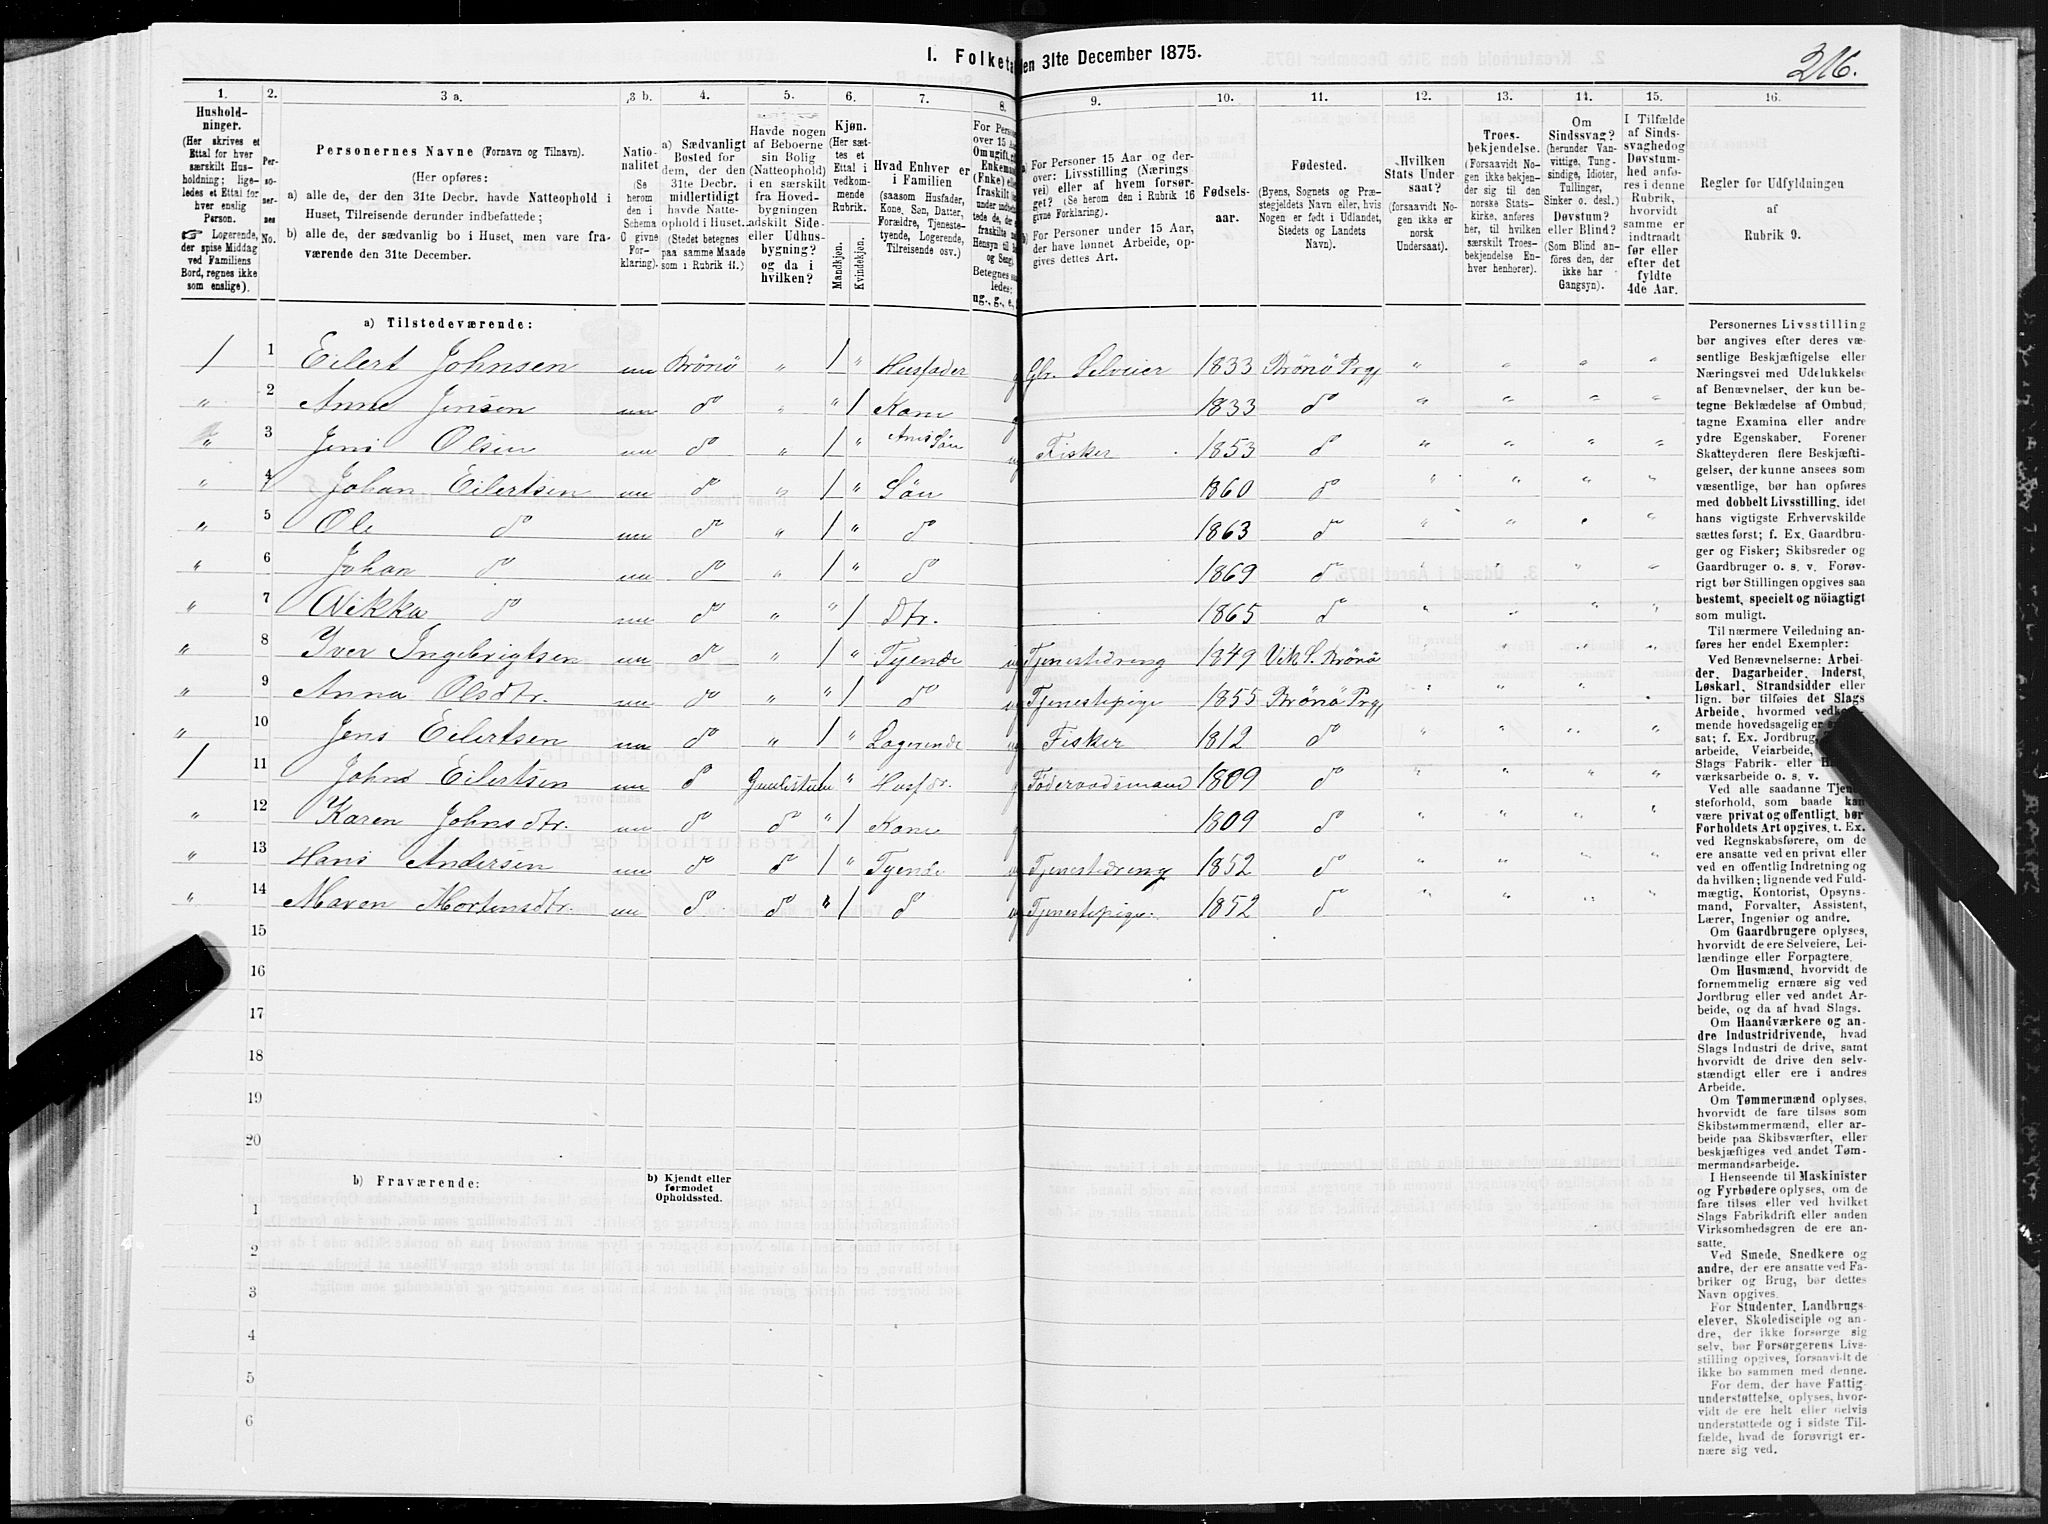 I. Folketa en 31te December 1875.
216.
1. 2. 3 a. 3 b. 4. 5. 6. 7. 8. 9. 10. 11. 12. 13. 14. 15. 16.
Hushold-
ninger.
(Her skrives et
Ettal for hver
særskilt Hus-
holdning; lige-
ledes et Ettal for
hver enslig
Person.
☞ Logerende,
der spise Middag
ved Familiens
Bord, regnes ikke
som enslige).
Per-
so-
ner-
nes
No.
Personernes Navne (Fornavn og Tilnavn).
(Her opføres:
a) alle de, der den 31te Decbr. havde Natteophold i
Huset, Tilreisende derunder indbefattede;
b) alle de, der sædvanlig bo i Huset, men vare fra-
værende den 31te December.
Natio-
nalitet
(Se
herom
den i
Schema
C givne
For-
klaring).
a) Sædvanligt
Bosted for
dem, der den
31te Decbr.
midlertidigt
havde Natte-
ophold i Huset.
(Stedet betegnes
paa samme Maade
som i Rubrik 11.)
Havde nogen
af Beboerne
sin Bolig
(Natteophold)
i en særskilt
fra Hoved-
bygningen
adskilt Side-
eller Udhus-
bygning?
og da i
hvilken?
Kjøn.
(Her sæt-
tes et
Ettal i
vedkom-
mende
Rubrik.
Mandkjøn.
Kvindekjøn.
Hvad Enhver er
i Familien
(saasom Husfader,
Kone, Søn, Datter,
Forældre, Tjeneste-
tyende, Logerende,
Tilreisende osv.)
For Person
over 15 Aar
Om ugift, g
Enkeman
(Fnke) elle
fraskilt
a) For Personer 15 Aar og der-
over: Livsstilling (Nærings-
vei) eller af hvem forsør-
get? (Se herom den i Rubrik 16
givne Forklaring).
b) For Personer under 15 Aar,
der have lønnet Arbeide, op-
gives dettes Art.
Fødsels-
aar.
Fødested.
(Byens, Sognets og Præ-
stegjeldets Navn eller, hvis
Nogen er født i Udlandet,
Stedets og Landets
Navn).
Hvilken
Stats Under
saat?
(forsaavidt No-
gen ikke er
norsk
Undersaat).
Troes-
bekjendelse.
(Forsaavidt No-
gen ikke bekjen-
der sig til den
norske Stats-
kirke, anføres
her, til hvilken
særskilt Troes-
bekjendelse En-
hver henhører).
Om
Sindssvag?
(herunder Van-
vittige, Tung-
sindige, Idioter,
Tullinger,
Sinker o. desl.)
Døvstum?
eller Blind?
(Som Blind an-
føres den, der
ikke har
Gangsyn).
I Tilfælde
af Sinds-
svaghedog
Døvstum-
hed anfø-
res i denne
Rubrik,
hvorvidt
samme er
indtraadt
før eller
efter det
fyldte
4de Aar.
Regler for Udfyldningen
af
Rubrik 9.
a) Tilstedeværende:
1 1 Eilert Johnsen nn Brönö " 1 " Husfader g Gbr. Selveier 1833 Brönö Prgj " " " "
" 2 Anne Jensen nn do " " 1 Kone g 1833 do " " " "
" 3 Jens Olsen nn do " 1 " Søn ug Fisker 1853 do " " " "
" 4 Johan Eilertsen nn do " 1 " Søn 1860 do " " " "
" 5 Ole do nn do " 1 " do 1863 do " " " "
" 6 Johan do nn do " 1 " do 1869 do " " " "
" 7 Nikka do nn do " " 1 Dtr. 1865 do " " " "
" 8 Iver Ingebrigtsen nn do " 1 " Tyende ug Tjenestedreng 1849 Vik S. Brönö " " " "
" 9 Anna Olsdtr. nn do " " 1 do ug Tjenestepige 1855 Brönö Prgj " " " "
" 10 Jens Eilertsen nn do " 1 " Logerende ug Fisker 1812 do " " " "
1 11 Johns Eilertsen nn do 1 " Husfdr. g Föderaadsmand 1809 do " " " "
" 12 Karen Johnsdtr. nn do do " 1 Kone g 1809 do " " " "
" 13 Hans Andersen nn do do 1 " Tyende ug Tjenestedreng 1852 do " " " "
" 14 Maren Mortensdtr. nn do do " 1 do ug Tjenestepige. 1852 do " " " "
15
16
17
18
19
20
b) Fraværende:
b) Kjendt eller
formodet
Opholdssted.
1
2
3
4
5
6
Personernes Livsstilling
bør angives efter deres væ-
sentlige Beskjæftigelse eller
Næringsvei med Udelukkelse
af Benævnelser, der kun be-
tegne Beklædelse af Ombud,
tagne Examina eller andre
ydre Egenskaber. Forener
Skatteyderen flere Beskjæfti-
gelser, der kunne ansees som
væsentlige, bør han opføres
med dobbelt Livsstilling, idet
hans vigtigste Erhvervskilde
sættes først; f. Ex. Gaardbru-
ger og Fisker; Skibsreder og
Gaardbruger o. s. v. Forøv-
rigt bør Stillingen opgives saa
bestemt, specielt og nöiagtigt
som muligt.
Til nærmere Veiledning an-
føres her endel Exempler:
Ved Benævnelserne: Arbei-
der, Dagarbeider, Inderst,
Løskarl, Strandsidder eller
lign. bør tilføies det Slags
Arbeide, hvormed vedkom-
mende hovedsagelig er
sat; f. Ex. Jordbrug,
arbeide, Veiarbeide,
Slags Fabrik- eller
værksarbeide o. s. v.
Ved alle saadanne Tjene-
steforhold, som baade kan
være privat og offentligt, bør
Forholdets Art opgives, t. Ex.
ved Regnskabsførere, om de
ere ansatte ved en privat eller
ved en offentlig Indretning og
da hvilken; lignende ved Fuld-
mægtig, Kontorist, Opsyns-
mand, Forvalter, Assistent,
Lærer, Ingeniør og andre.
Om Gaardbrugere oplyses,
hvorvidt de ere Selveiere, Lei-
lændinge eller Forpagtere.
Om Husmænd, hvorvidt de
fornemmelig ernære sig ved
Jordbrug eller ved andet Ar-
beide, og da af hvad Slags.
Om Haandværkere og an-
dre Industridrivende, hvad
Slags Industri de drive, samt
hvorvidt de drive den selv-
stændigt eller ere i andres
Arbeide.
Om Tømmermænd oplyses,
hvorvidt de fare tilsøs som
Skibstømmermænd, eller ar-
beide paa Skibsværfter, eller
beskjæftiges ved andet Tøm-
mermandsarbeide.
I Henseende til Maskinister
og Fyrbødere oplyses, om de
fare tilsøs eller ved hvilket
Slags Fabrikdrift eller anden
Virksomhedsgren de ere an-
satte.
Ved Smede, Snedkere og
andre, der ere ansatte ved Fa-
briker og Brug, bør dettes
Navn opgives.
For Studenter, Landbrugs-
elever, Skoledisciple og an-
dre, der ikke forsørge sig
selv, bør Forsørgerens Livs-
stilling opgives, forsaavidt de
ikke bo sammen med denne.
For dem, der have Fattig-
understøttelse, oplyses, hvor-
vidt de ere helt eller delvis
understøttede og i sidste Til-
fælde, hvad de forøvrigt er-
nære sig ved.